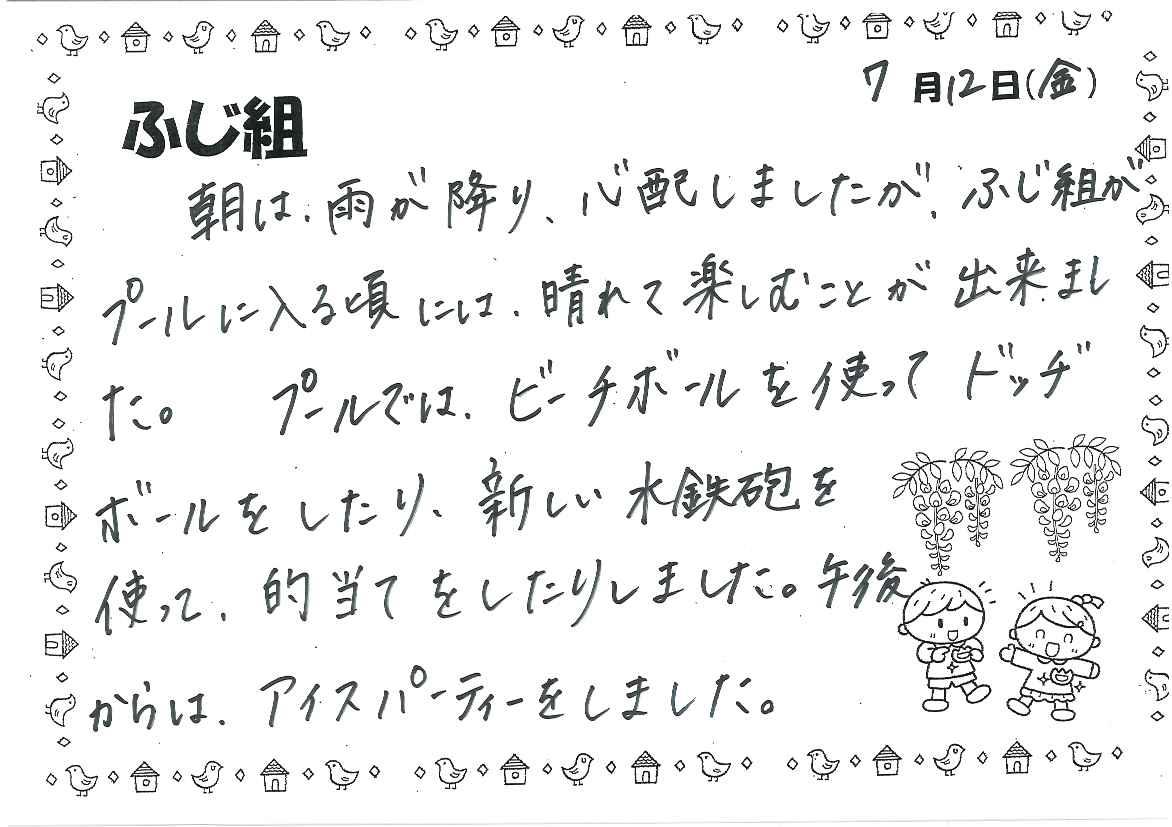 7月12日(金)
ふじ組
朝は、雨が降り、心配しましたが、ふじ組が
プールに入る頃には、晴れて楽しむことが出来まし
た。 プールでは、ビーチボールを使ってドッヂ
ボールをしたり、新しい水鉄砲を
使って、的当てをしたりしました。午後
からは、アイスパーティーをしました。